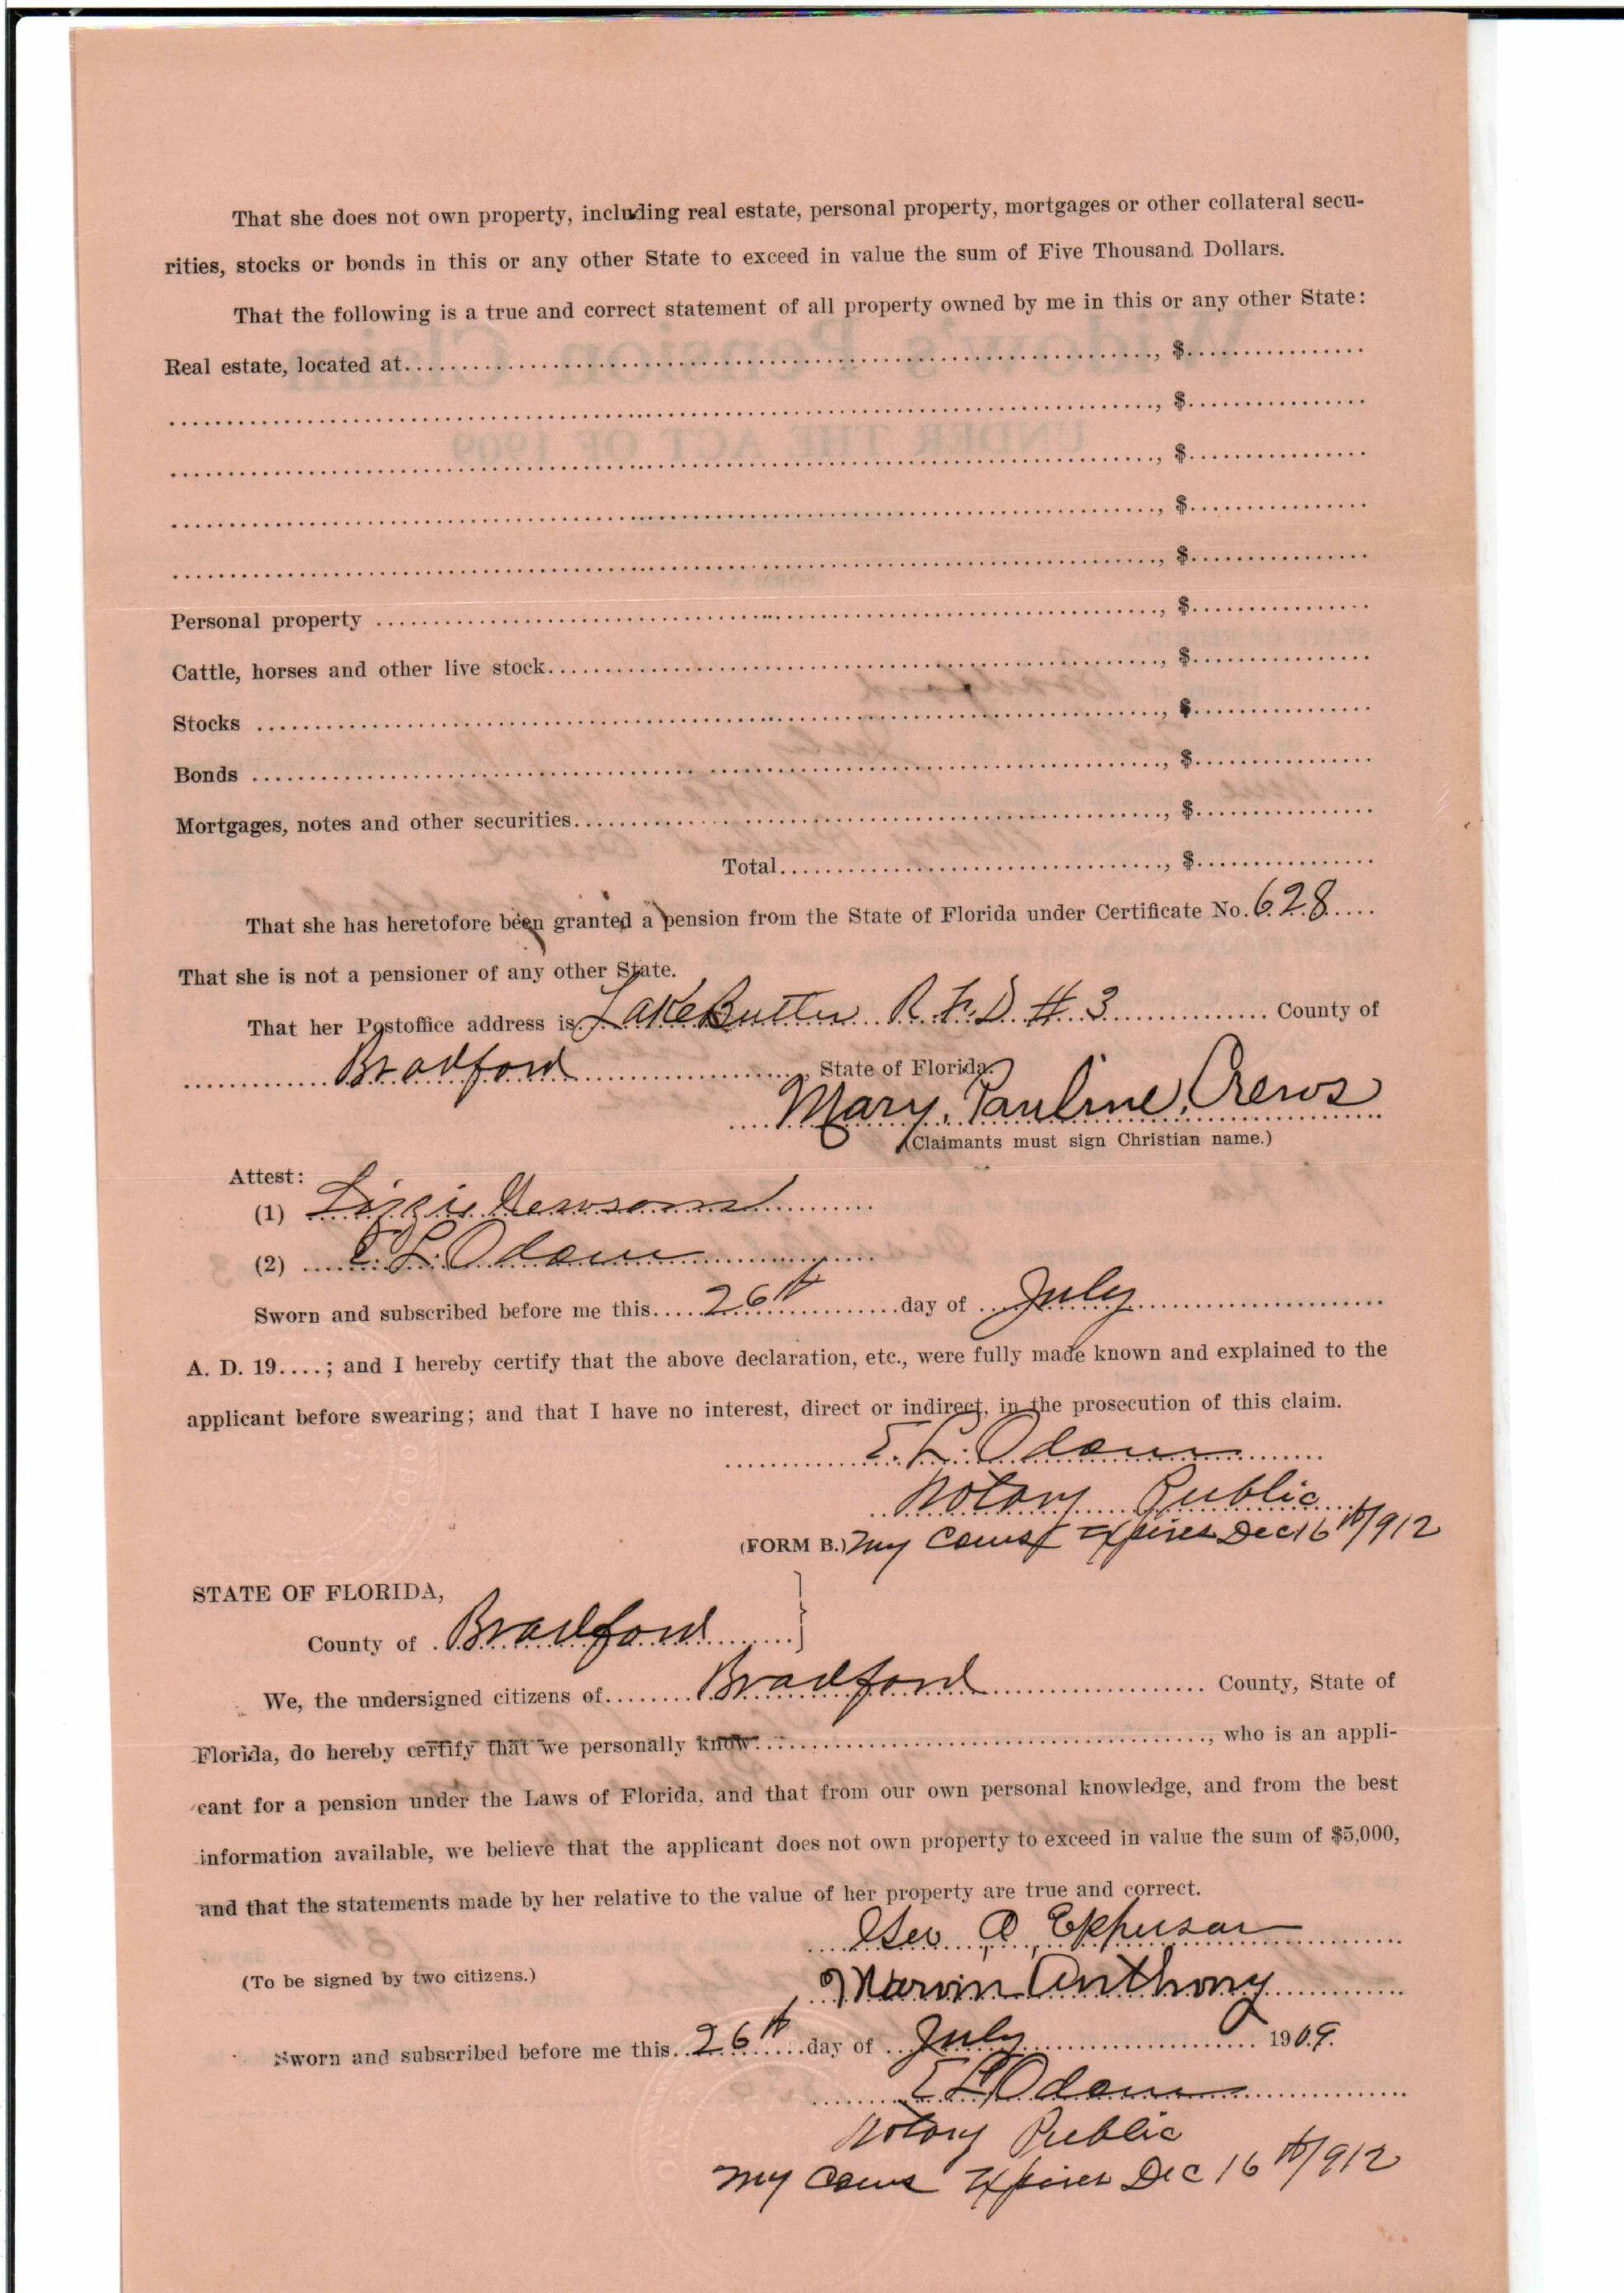 That she does not own property, including real estate, personal property, mortgages or other collateral secu-
rities, stocks or bonds in this or any other State to exceed in value the sum of Five Thousand Dollars.
That the following is a true and correct statement of all property owned by me in this or any other State:
Real estate, located at..............................., $...............
..............................., $...............
..............................., $...............
..............................., $...............
..............................., $...............
Personal property ..............................., $...............
Cattle, horses and other live stock..............................., $...............
Stocks ..............................., $...............
Bonds ..............................., $...............
Mortgages, notes and other securities..............................., $...............
Total..............................., $...............
That she has heretofore been granted a pension from the State of Florida under Certificate No. 628
That she is not a pensioner of any other State.
That her Postoffice address is Lake Butler R.F.D. # 3 County of
Bradford, State of Florida.
Mary Pauline Crews
(Claimants must sign Christian name.)
Attest:
(1) Lizzie Newsom
(2) E. L. Odom
Sworn and subscribed before me this 26th day of July
A. D. 19....; and I hereby certify that the above declaration, etc., were fully made known and explained to the
applicant before swearing; and that I have no interest, direct or indirect, in the prosecution of this claim.
E. L. Odom
Notary Public
(FORM B.) My Expires Dec 16th/912
STATE OF FLORIDA,
County of Bradford }
We, the undersigned citizens of Bradford County, State of
Florida, do hereby certify that we personally know..............................., who is an appli-
cant for a pension under the Laws of Florida, and that from our own personal knowledge, and from the best
information available, we believe that the applicant does not own property to exceed in value the sum of $5,000,
and that the statements made by her relative to the value of her property are true and correct.
Marvin Anthony
(To be signed by two citizens.)
Sworn and subscribed before me this 26th day of July 1909.
E L Odom
Notary Public
My Expires Dec 16th/912